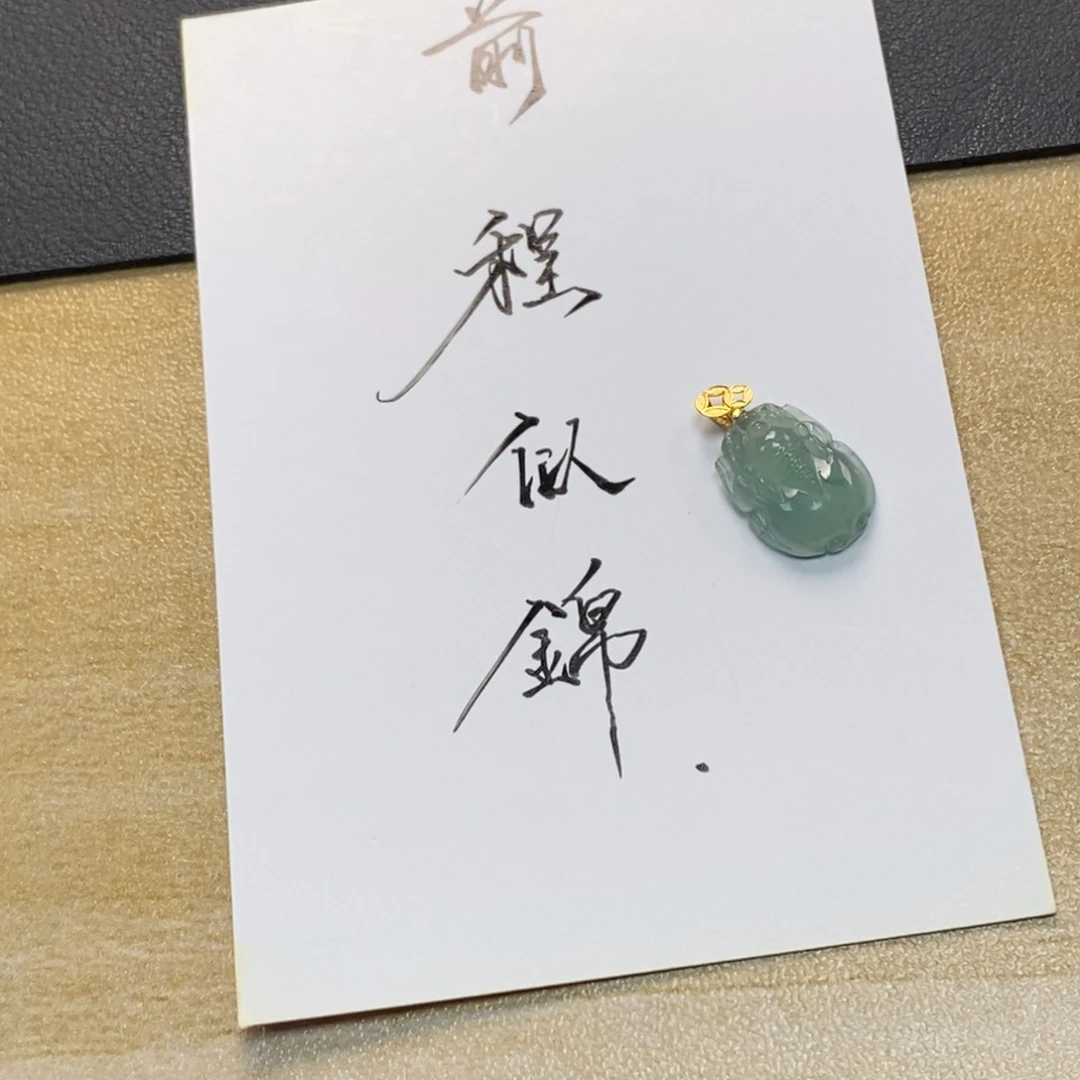 前程似錦.